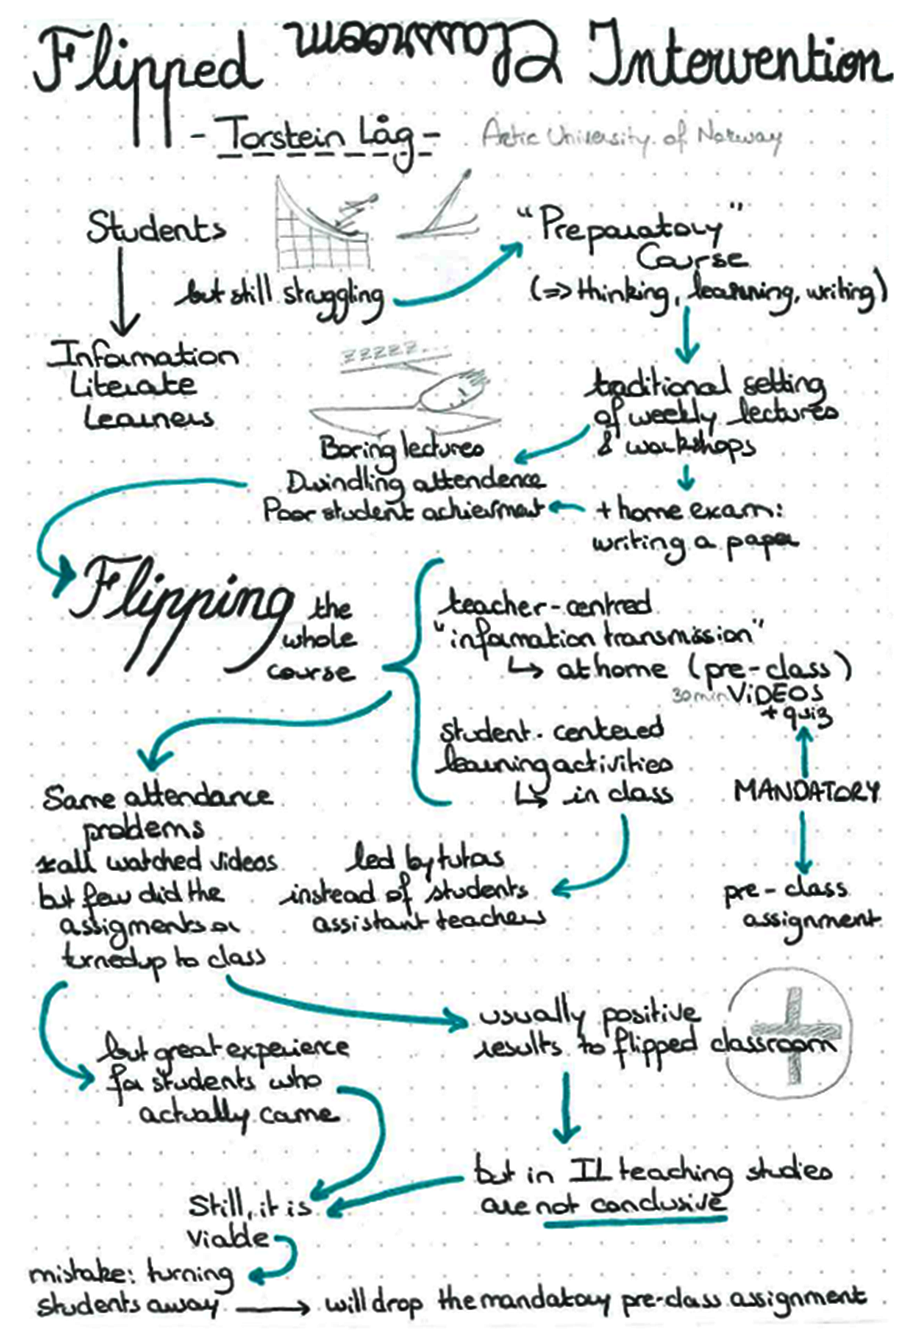 Flipped Classroom Intervention
- Torstein Låg - Artic University of Norway
Students
but still struggling
"Preparatory"
Course
(=> thinking, learning, writing)
Information
Literate
Learners
zzzzz...
traditional setting
of weekly lectures
& workshops
Boring lectures
Dwindling attendence
Poor student achievment
+ home exam:
writing a paper
Flipping the
whole
course
teacher-centred
"information transmission"
↳ at home (pre-class)
30min ViDEOS
+ quiz
student-centered
learning activities
↳ in class
MANDATORY
pre-class
assignment
led by tutors
instead of students
assistant teachers
Same attendance
problems
*all watched videos
but few did the
assigments or
turned up to class
usually positive
results to flipped classroom
but great experience
for students who
actually came
but in IL teaching studies
are not conclusive
Still, it is
viable
mistake: turning
students away → will drop the mandatory pre-class assignment